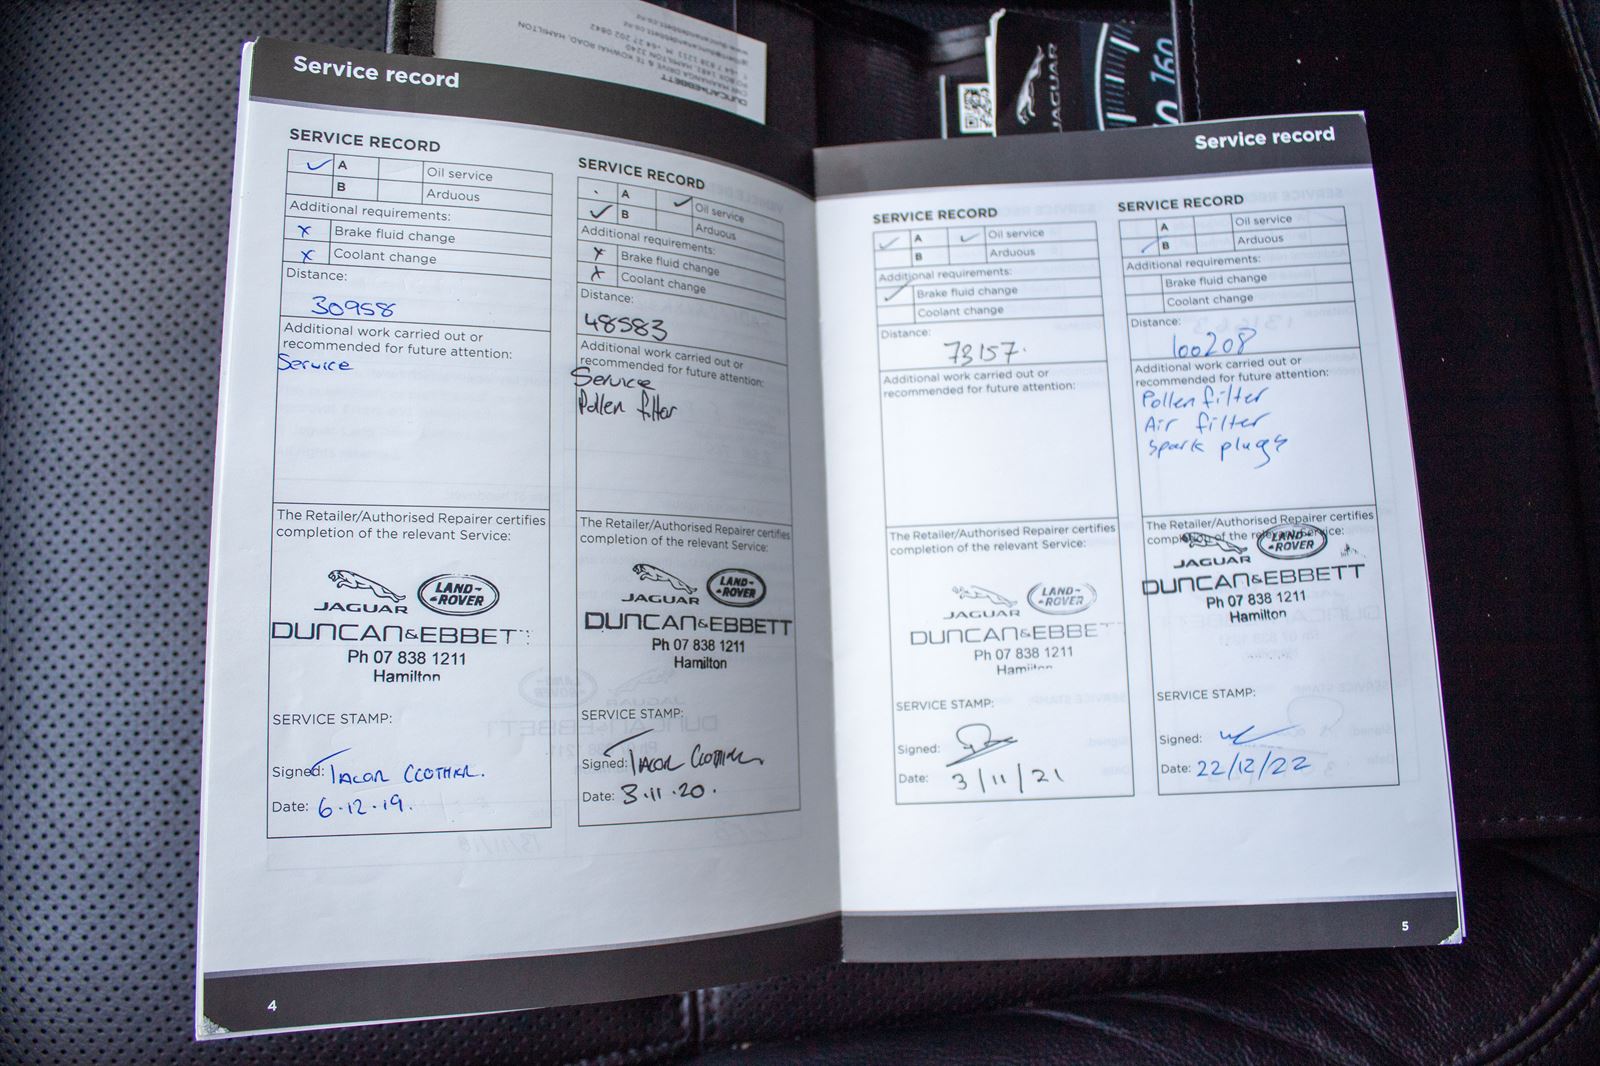 Service record
SERVICE RECORD
A
Oil service
B
Arduous
Additional requirements:
Brake fluid change
Coolant change
Distance:
309858
Additional work carried out or
recommended for future attention:
Service
The Retailer/Authorised Repairer certifies
completion of the relevant Service:
JAGUAR
LAND-
-ROVER
DUNCAN&EBBET
Ph 07 838 1211
Hamilton
SERVICE STAMP:
Signed:
Date: 6.12.19.
4
SERVICE RECORD
A
Oil service
B
Arduous
Additional requirements:
Brake fluid change
Coolant change
Distance:
48583
Additional work carried out or
recommended for future attention:
Service
Pollen filter
The Retailer/Authorised Repairer certifies
completion of the relevant Service:
JAGUAR
LAND-
-ROVER
DUNCAN&EBBETT
Ph 07 838 1211
Hamilton
SERVICE STAMP:
Signed:
Date: 3.11.20.
Service record
SERVICE RECORD
A
Oil service
B
Arduous
Additional requirements:
Brake fluid change
Coolant change
Distance:
73157.
Additional work carried out or
recommended for future attention:
The Retailer/Authorised Repairer certifies
completion of the relevant Service:
JAGUAR
LAND-
-ROVER
DUNCAN&EBBET
Ph 07 838 1211
Hamilton
SERVICE STAMP:
Signed:
Date: 3/11/21
SERVICE RECORD
A
Oil service
B
Arduous
Additional requirements:
Brake fluid change
Coolant change
Distance:
100208
Additional work carried out or
recommended for future attention:
Pollen filter
Air filter
Spark plugs
The Retailer/Authorised Repairer certifies
completion of the relevant Service:
JAGUAR
LAND-
-ROVER
DUNCAN&EBBETT
Ph 07 838 1211
Hamilton
SERVICE STAMP:
Signed:
Date: 22/12/22
5
DUNCAN&EBBETT
JAGUAR
160